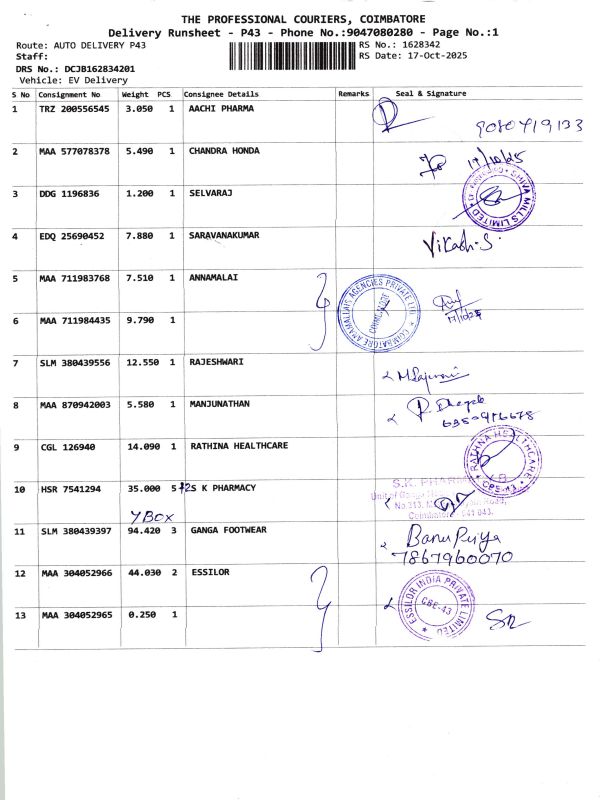 THE PROFESSIONAL COURIERS, COIMBATORE
Delivery Runsheet - P43 - Phone No.:9047080280 - Page No.:1
Route: AUTO DELIVERY P43 RS No.: 1628342
Staff: RS Date: 17-Oct-2025
DRS No.: DCJB162834201
Vehicle: EV Delivery
S No Consignment No Weight PCS Consignee Details Remarks Seal & Signature
1 TRZ 200556545 3.050 1 AACHI PHARMA
2 MAA 577078378 5.490 1 CHANDRA HONDA 17/10/25
3 DDG 1196836 1.200 1 SELVARAJ SHIVA MILLS LIMITED
4 EDQ 25690452 7.880 1 SARAVANAKUMAR Vikash.S.
5 MAA 711983768 7.510 1 ANNAMALAI COIMBATORE ANAMALLAIS AGENCIES PRIVATE LTD. COIMBATORE
6 MAA 711984435 9.790 1
7 SLM 380439556 12.550 1 RAJESHWARI
8 MAA 870942003 5.580 1 MANJUNATHAN
9 CGL 126940 14.090 1 RATHINA HEALTHCARE RATHNA HEALTHCARE CBE-43
10 HSR 7541294 35.000 5 S K PHARMACY S.K. PHAR
Coimbatore 641 043.
YBOX
11 SLM 380439397 94.420 3 GANGA FOOTWEAR Banu Priya
7867960070
12 MAA 304052966 44.030 2 ESSILOR ESSILOR INDIA PRIVATE LIMITED CBE-43
13 MAA 304052965 0.250 1